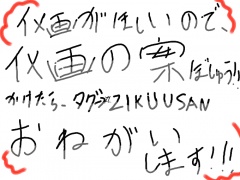 仪画がほしいので、
仪画の案ぼしゅう!!
かけたら、タグ→ZIKUUSAN
おねがい
します!!!